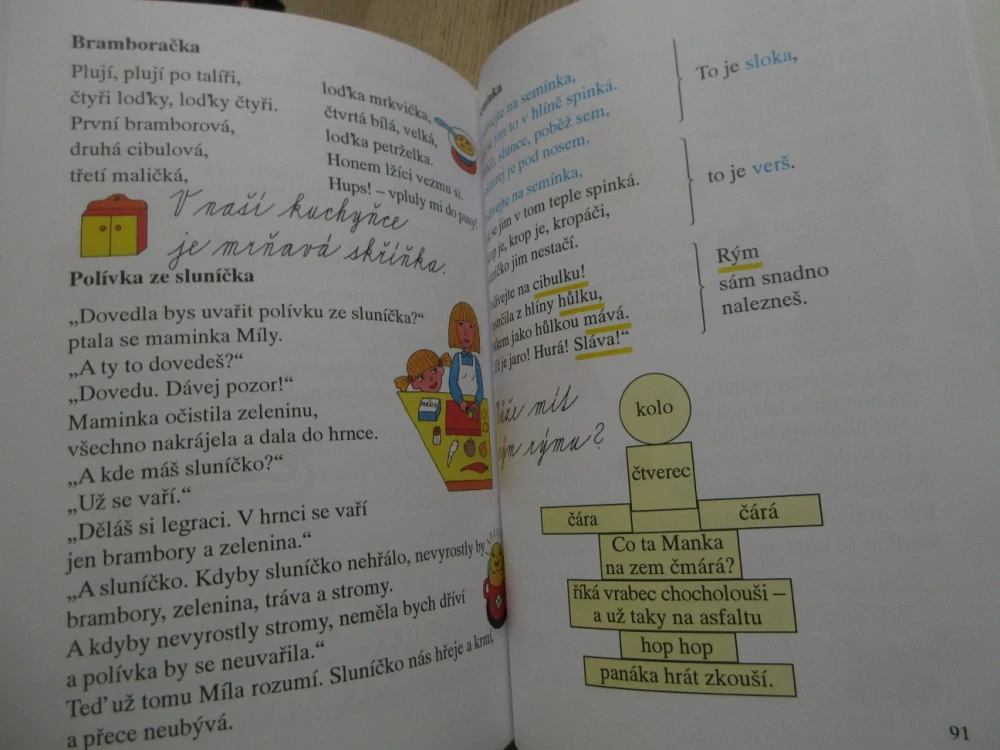 Bramboračka
Plují, plují po talíři,
čtyři loďky, loďky čtyři.
První bramborová,
druhá cibulová,
třetí maličká,
loďka mrkvička,
čtvrtá bílá, velká,
loďka petrželka.
Honem lžíci vezmu si.
Hups! – vpluly mi do pusy!
V naší kuchyňce
je mrňavá skříňka.
Polívka ze sluníčka
„Dovedla bys uvařit polívku ze sluníčka?“
ptala se maminka Míly.
„A ty to dovedeš?“
„Dovedu. Dávej pozor!“
Maminka očistila zeleninu,
všechno nakrájela a dala do hrnce.
„A kde máš sluníčko?“
„Už se vaří.“
„Děláš si legraci. V hrnci se vaří
jen brambory a zelenina.“
„A sluníčko. Kdyby sluníčko nehřálo, nevyrostly by
brambory, zelenina, tráva a stromy.
A kdyby nevyrostly stromy, neměla bych dříví
a polívka by se neuvařila.“
Teď už tomu Míla rozumí. Sluníčko nás hřeje a krmí,
a přece neubývá.
MÁSLO
na semínka,
se jim to v hlíně spinká.
slunce, poběž sem,
je pod nosem.
na semínka,
se jim v tom teple spinká.
je, krop je, kropáči,
jim nestačí.
na cibulku!
z hlíny hůlku,
jako hůlkou mává.
je jaro! Hurá! Sláva!“
To je sloka,
to je verš.
Rým
sám snadno
nalezneš.
mít
rýmu?
kolo
čtverec
čára
čárá
Co ta Manka
na zem čmárá?
říká vrabec chocholouši –
a už taky na asfaltu
hop hop
panáka hrát zkouší.
91